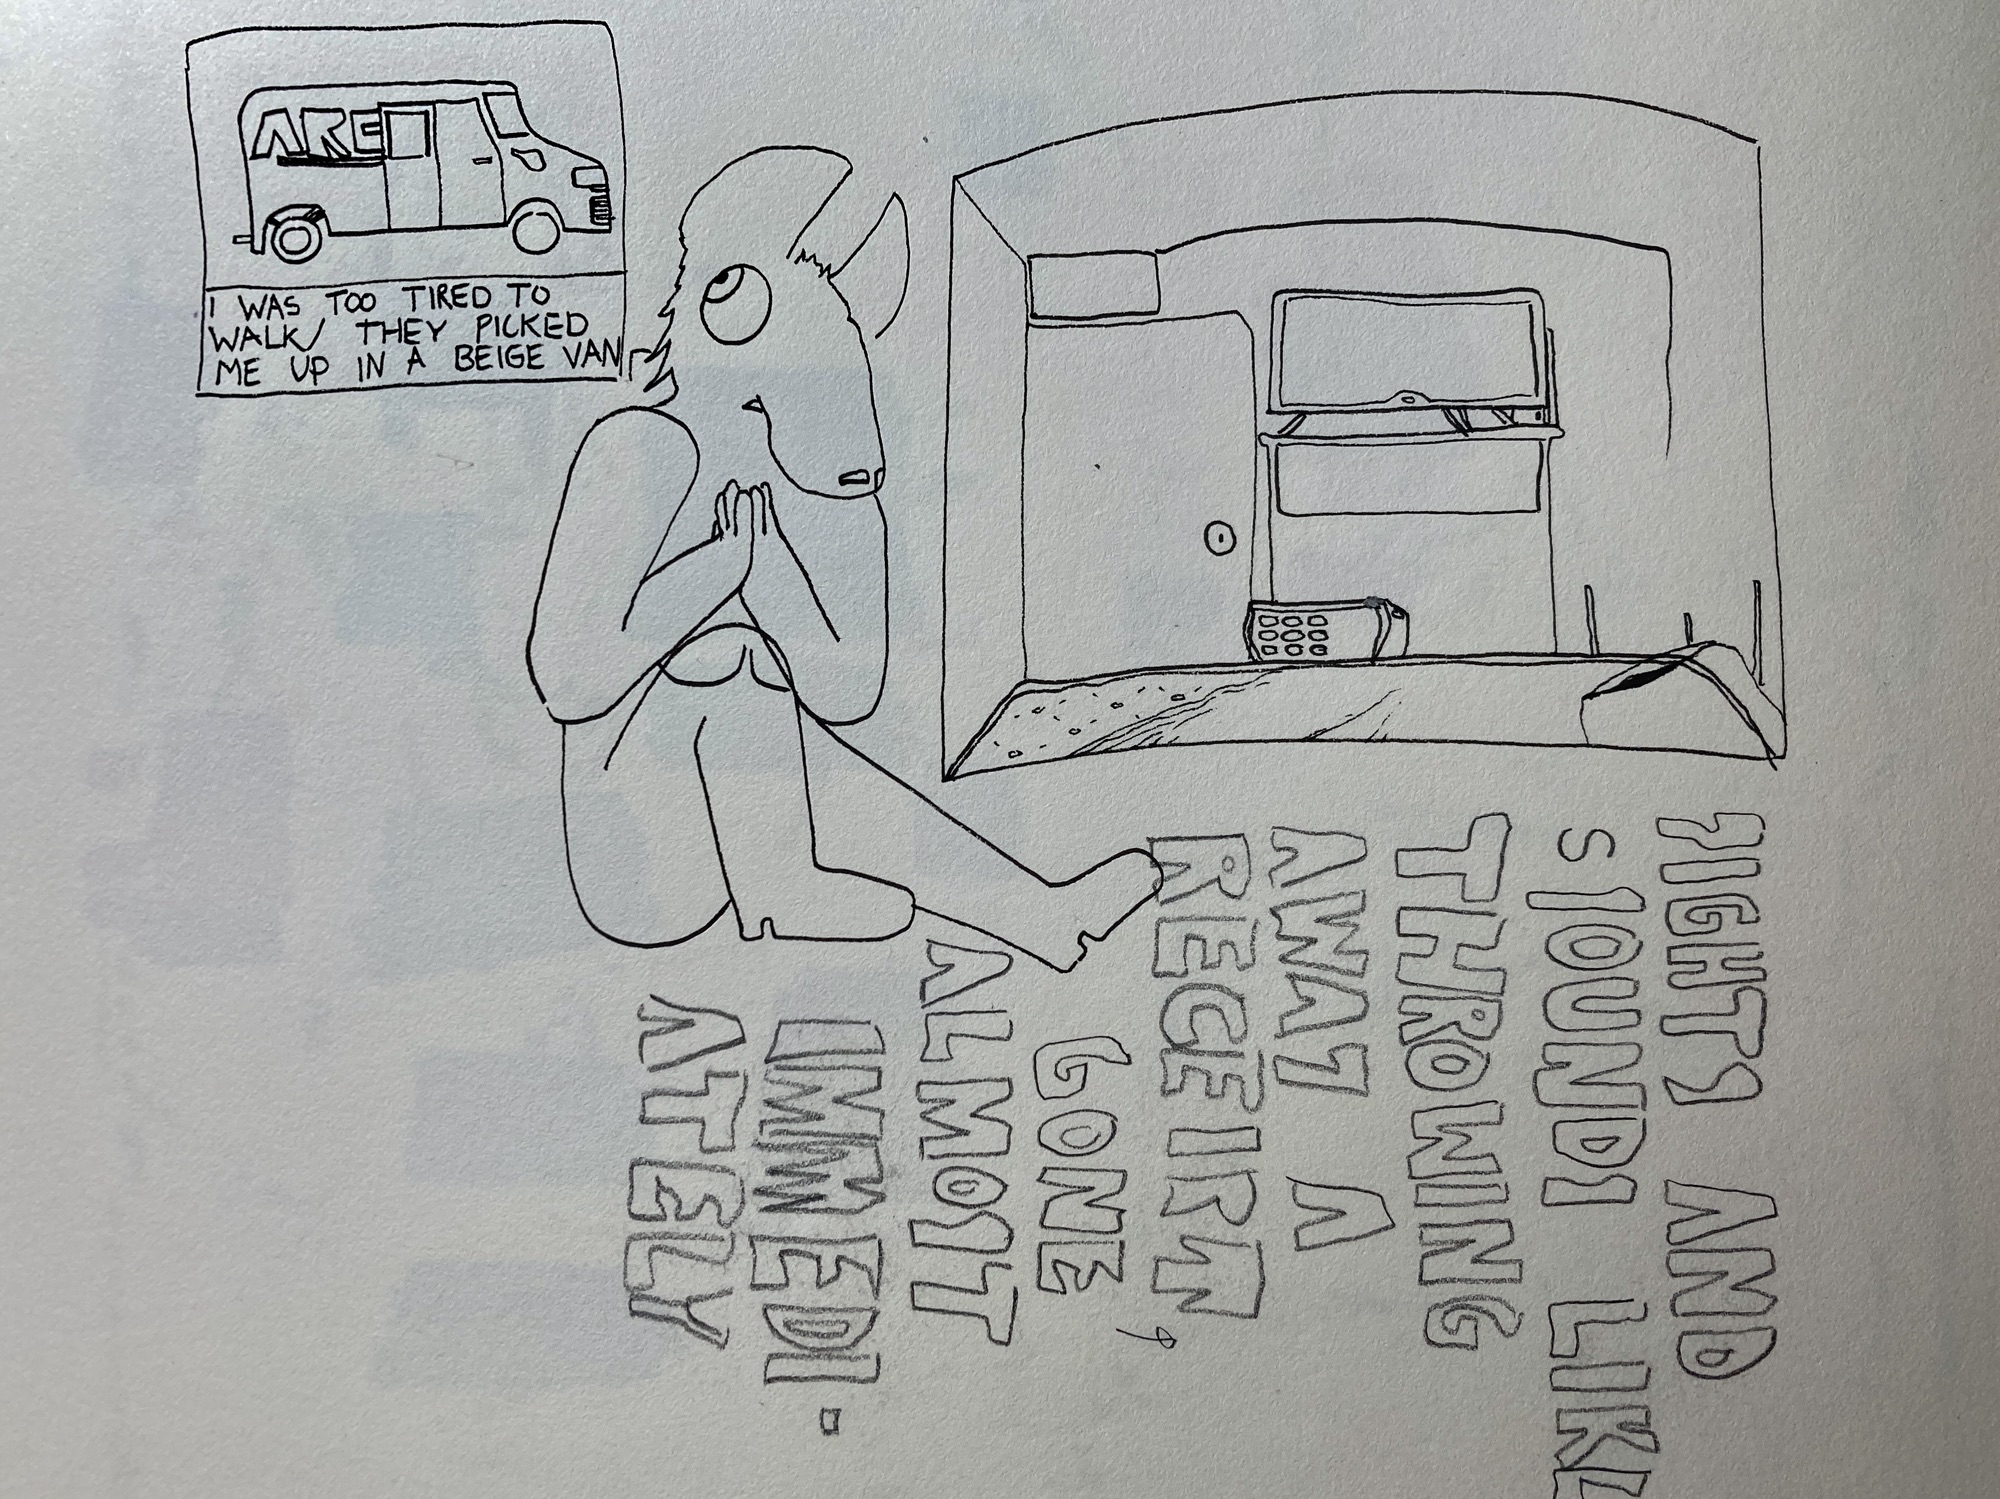 ARE
I WAS TOO TIRED TO
WALK/ THEY PICKED
ME UP IN A BEIGE VAN
SIGHTS AND
SOUNDS LIKE
THROWING
AWAY A
GONE
ALMOST
IMMEDI-
ATELY